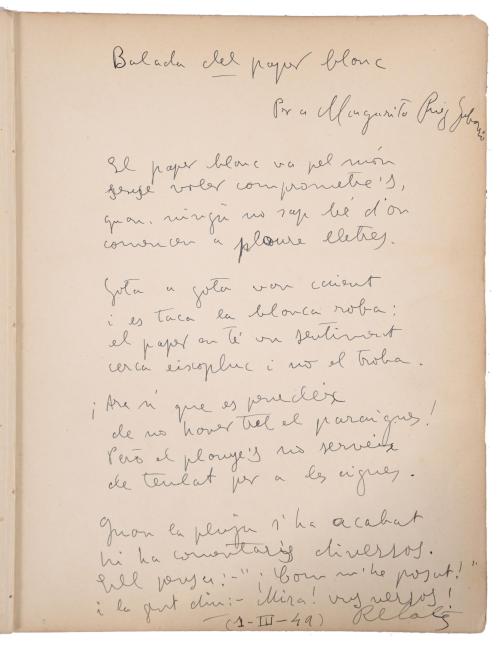 Balada del paper blanc
Per a Margarita Puig
El paper blanc va pel món
sense voler comprometre's,
quan ningú no sap bé d'on
comencen a ploure lletres.
Gota a gota van caient
i es taca la blanca roba:
el paper en té un sentiment
cerca eixopluc i no el troba.
¡Ara sí que es penedeix
de no haver tret el paraigues!
Però el plouge's no serveix
de teulat per a les aigues.
Quan la pluja s'ha acabat
hi ha comentaris diversos.
Ell pensa: -"¡Com m'he posat!"
i la gent diu: - Mira! uns versos!
(1-III-49)